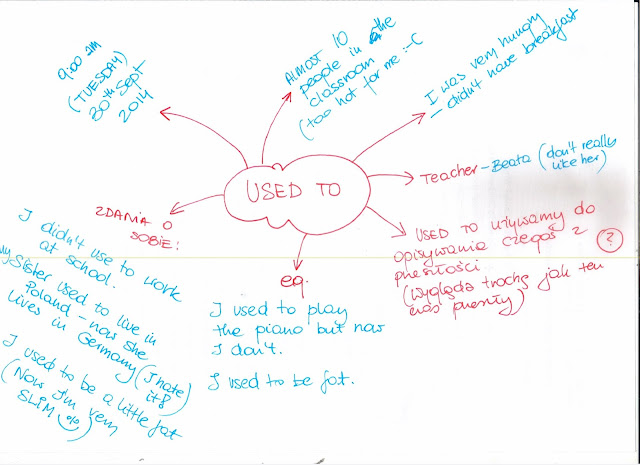 9:00 am
(TUESDAY)
30th Sept
2014
ALMOST 10
people in the
classroom
(too hot for me :-C
I was very hungry
- didn't have breakfast
USED TO
Teacher - Beata (don't really
like her)
USED TO używamy do
opisywania czegoś z
przeszłości
(wygląda trochę jak ten
czas przeszły)
?
ZDANIA O
SOBIE:
I didn't use to work
at school.
My Sister used to live in
Poland - now she
lives in Germany (I hate
it!)
I used to be a little fat
(Now I'm very
SLIM
eg.
I used to play
the piano but now
I don't.
I used to be fat.